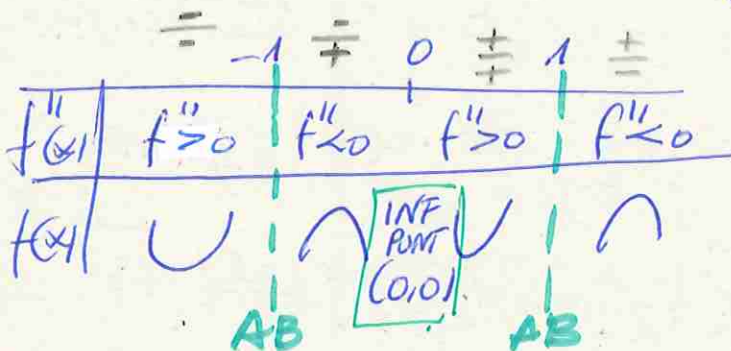 -/- -1 -/+ 0 +/+ 1 +/-
f''(x) f''>0 f''<0 f''>0 f''<0
f(x) ∪ ∩ INF ∪ ∩
PUNT
(0,0)
AB AB